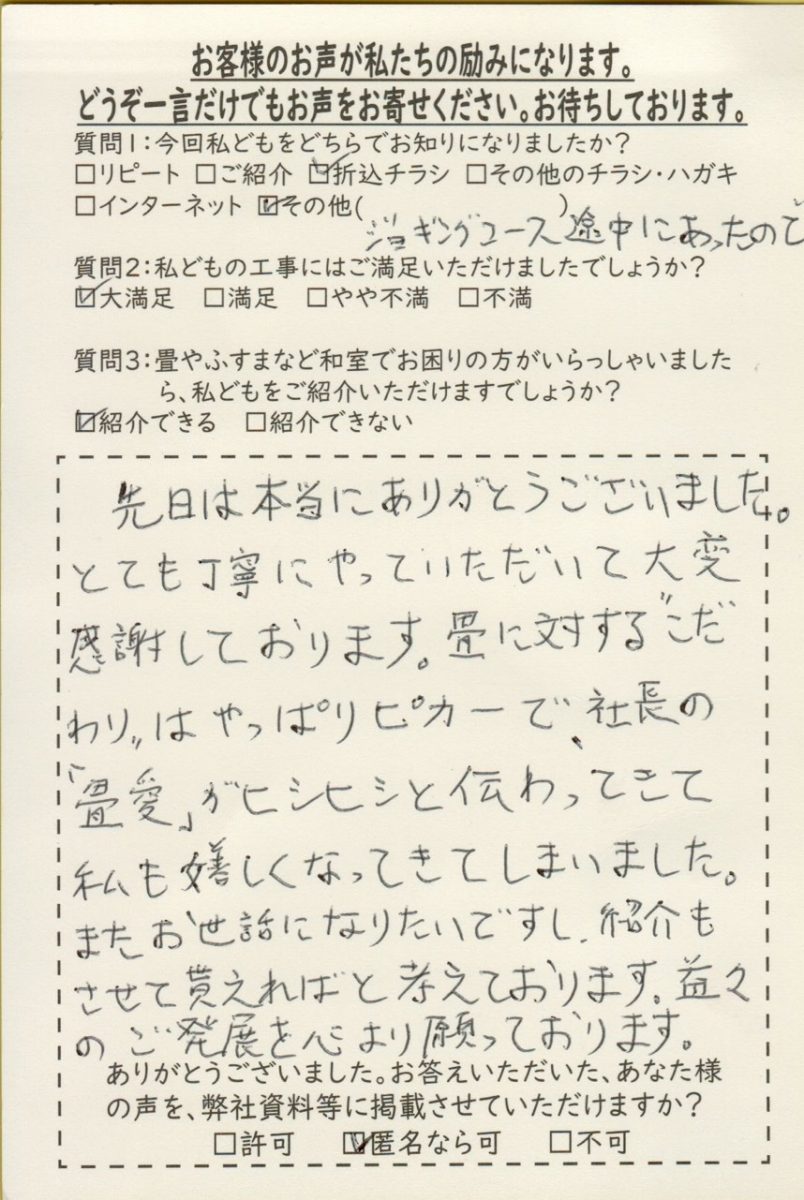 お客様のお声が私たちの励みになります。
どうぞ一言だけでもお声をお寄せください。お待ちしております。
質問1:今回私どもをどちらでお知りになりましたか?
□リピート □ご紹介 ☑折込チラシ □その他のチラシ・ハガキ
□インターネット ☑その他( )
ジョギングコース途中にあったので
質問2:私どもの工事にはご満足いただけましたでしょうか?
☑大満足 □満足 □やや不満 □不満
質問3:畳やふすまなど和室でお困りの方がいらっしゃいました
ら、私どもをご紹介いただけますでしょうか?
☑紹介できる □紹介できない
先日は本当にありがとうございました。
とても丁寧にやっていただいて大変
感謝しております。畳に対する"こだ
わり"はやっぱりピカ一で、社長の
「畳愛」がヒシヒシと伝わってきて
私も嬉しくなってきてしまいました。
またお世話になりたいですし、紹介も
させて貰えればと考えております。益々
のご発展を心より願っております。
ありがとうございました。お答えいただいた、あなた様
の声を、弊社資料等に掲載させていただけますか?
□許可 ☑匿名なら可 □不可